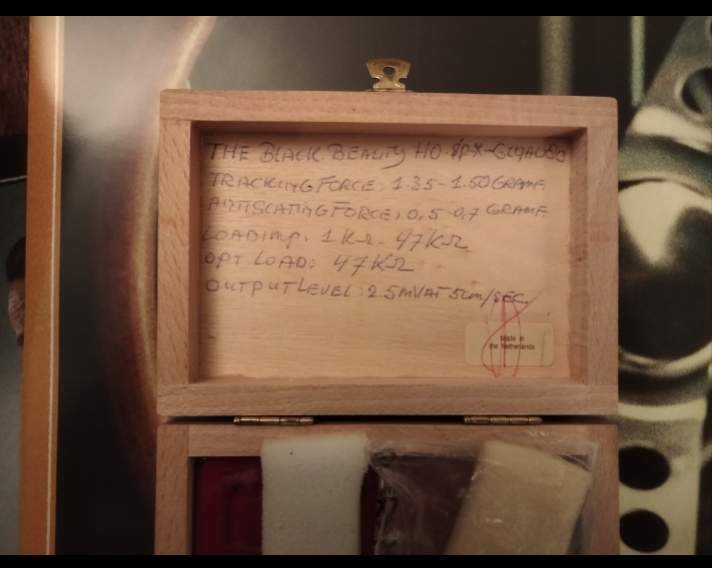 THE BLACK BEAUTY HO.
TRACKING FORCE: 1.35-1.50 GRAMF
ANTISCATING FORCE: 0,5-0,7 GRAMF
LOADIMP. 1KΩ - 47KΩ
OPT LOAD: 47KΩ
OUTPUT LEVEL: 2.5MVAT 5CM/SEC.
Made in
the Netherlands